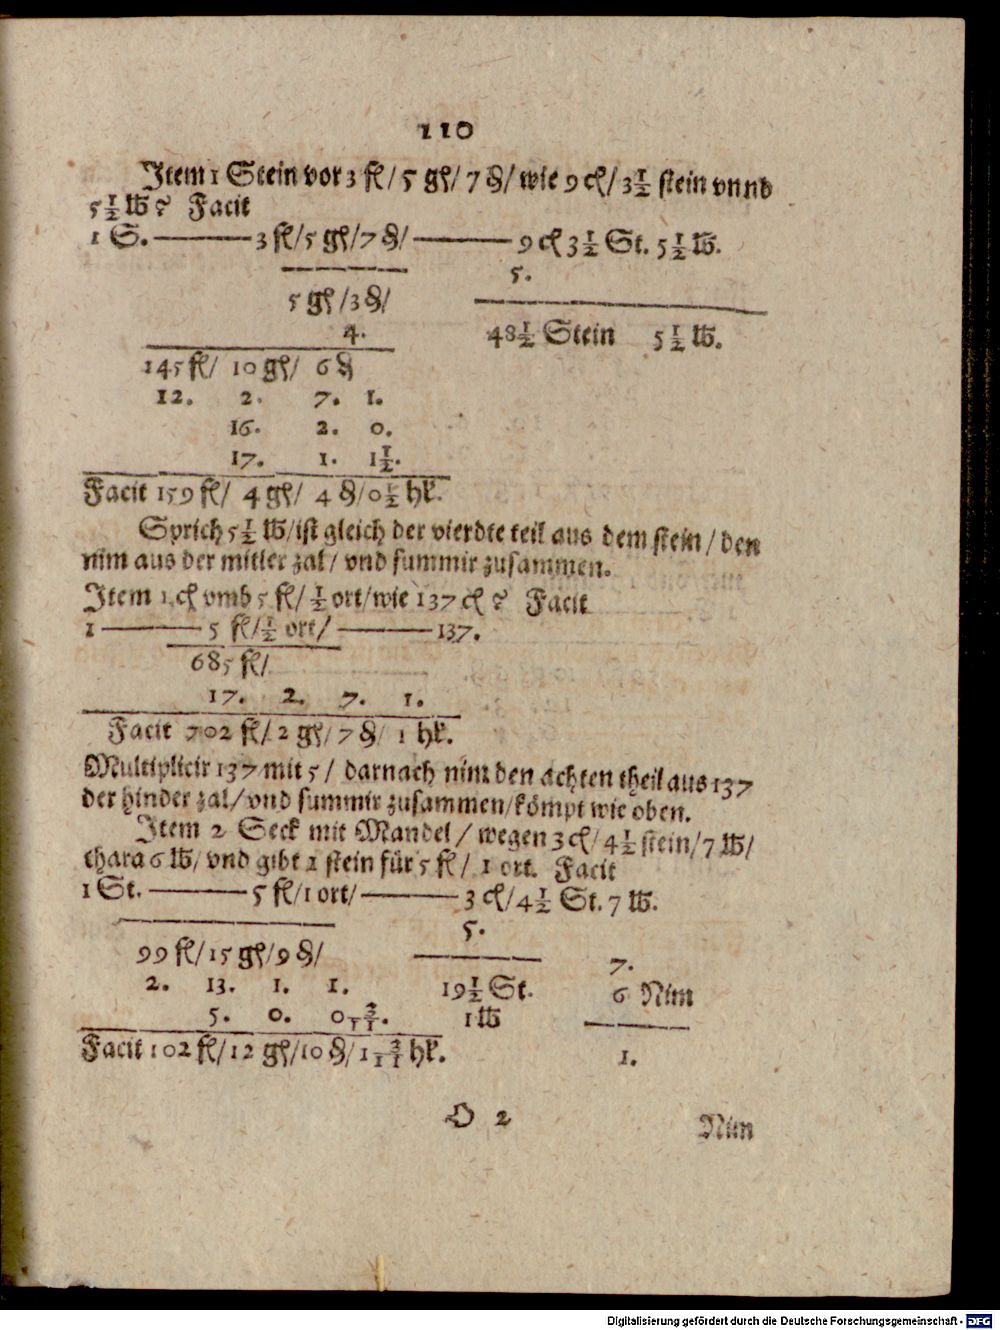 110
Item 1 Stein vor 3 fl/ 5 gl/ 7 ₰/ wie 9 cl/ 3 1/2 stein vnnd
5 1/2 lb? Facit
1 S. ——— 3 fl/5 gl/7 ₰/ ——— 9 cl 3 1/2 St. 5 1/2 lb.
5.
5 gl /3 ₰/
4. 48 1/2 Stein 5 1/2 lb.
145 fl/ 10 gl/ 6 ₰
12. 2. 7. 1.
16. 2. 0.
17. 1. 1 1/2.
Facit 159 fl/ 4 gl/ 4 ₰/ 0 1/2 hl.
Sprich 5 1/2 lb/ist gleich der vierdte teil aus dem stein/ den
nim aus der mitler zal/ vnd summir zusammen.
Item 1 cl vmb 5 fl/ 1/2 ort/wie 137 cl? Facit
1 ——— 5 fl/ 1/2 ort/ ——— 137.
685 fl/
17. 2. 7. 1.
Facit 702 fl/ 2 gl/ 7 ₰/ 1 hl.
Multiplicir 137 mit 5/ darnach nim den achten theil aus 137
der hinder zal/ vnd summir zusammen/kömpt wie oben.
Item 2 Seck mit Mandel/ wegen 3 cl/ 4 1/2 stein/ 7 lb/
thara 6 lb/ vnd gibt 1 stein für 5 fl/ 1 ort. Facit
1 St. ——— 5 fl/1 ort/ ——— 3 cl/4 1/2 St. 7 lb.
5.
99 fl/15 gl/9 ₰/ 7.
2. 13. 1. 1. 19 1/2 St. 6 Nim
5. 0. 0 2/11. 1 lb
Facit 102 fl/12 gl/10 ₰/ 1 2/11 hl. 1.
O 2 Nim
Digitalisierung gefördert durch die Deutsche Forschungsgemeinschaft - DFG